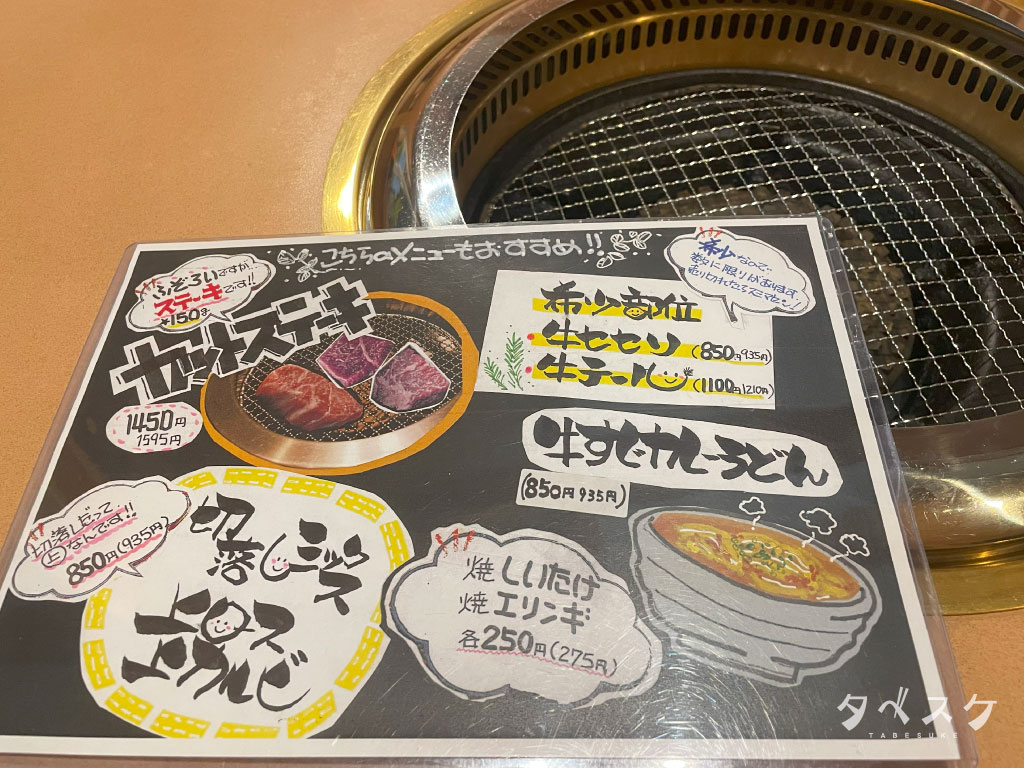 こちらのメニューもおすすめ!!
ふぞろいですが、
ステーキです!!
¥150g
カットステーキ
1450円
1595円
希少なので、
数に限りがあります
売り切れたらスミマセン!
希少部位
牛セセリ (850円 935円)
牛テール (1100円 1210円)
牛すじカレーうどん
(850円 935円)
切落しだって
上なんです!!
850円(935円)
切落しミックス
上ロース
上カルビ
焼しいたけ
焼エリンギ
各250円(275円)
タベスケ
TABESUKE